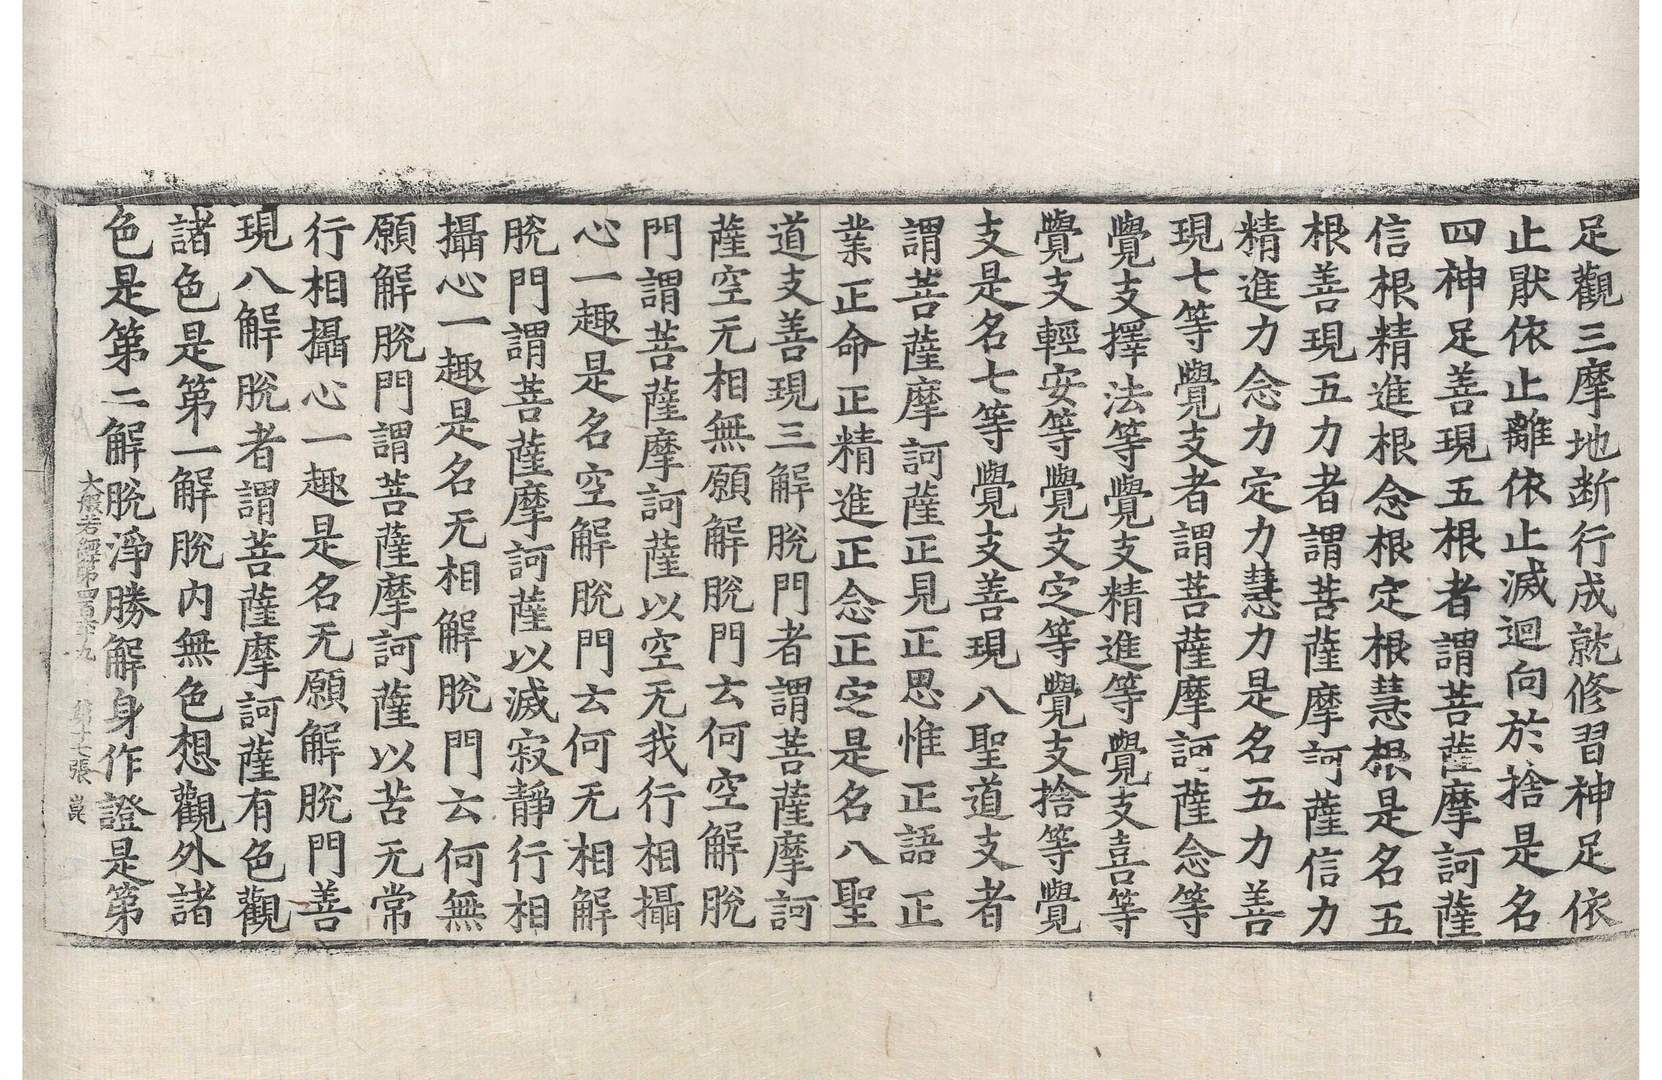 足觀三摩地断行成就修習神足依
止厭依止離依止滅迴向於捨是名
四神足善現五根者謂菩薩摩訶薩
信根精進根念根定根慧根是名五
根善現五力者謂菩薩摩訶薩信力
精進力念力定力慧力是名五力善
現七等覺支者謂菩薩摩訶薩念等
覺支擇法等覺支精進等覺支喜等
覺支輕安等覺支定等覺支捨等覺
支是名七等覺支善現八聖道支者
謂菩薩摩訶薩正見正思惟正語正
業正命正精進正念正定是名八聖
道支善現三解脫門者謂菩薩摩訶
薩空无相無願解脫門云何空解脫
門謂菩薩摩訶薩以空无我行相攝
心一趣是名空解脫門云何无相解
脫門謂菩薩摩訶薩以滅寂靜行相
攝心一趣是名无相解脫門云何無
願解脫門謂菩薩摩訶薩以苦无常
行相攝心一趣是名无願解脫門善
現八解脫者謂菩薩摩訶薩有色觀
諸色是第一解脫內無色想觀外諸
色是第二解脫淨勝解身作證是第
大般若經第四百八十九 第十七張 崑